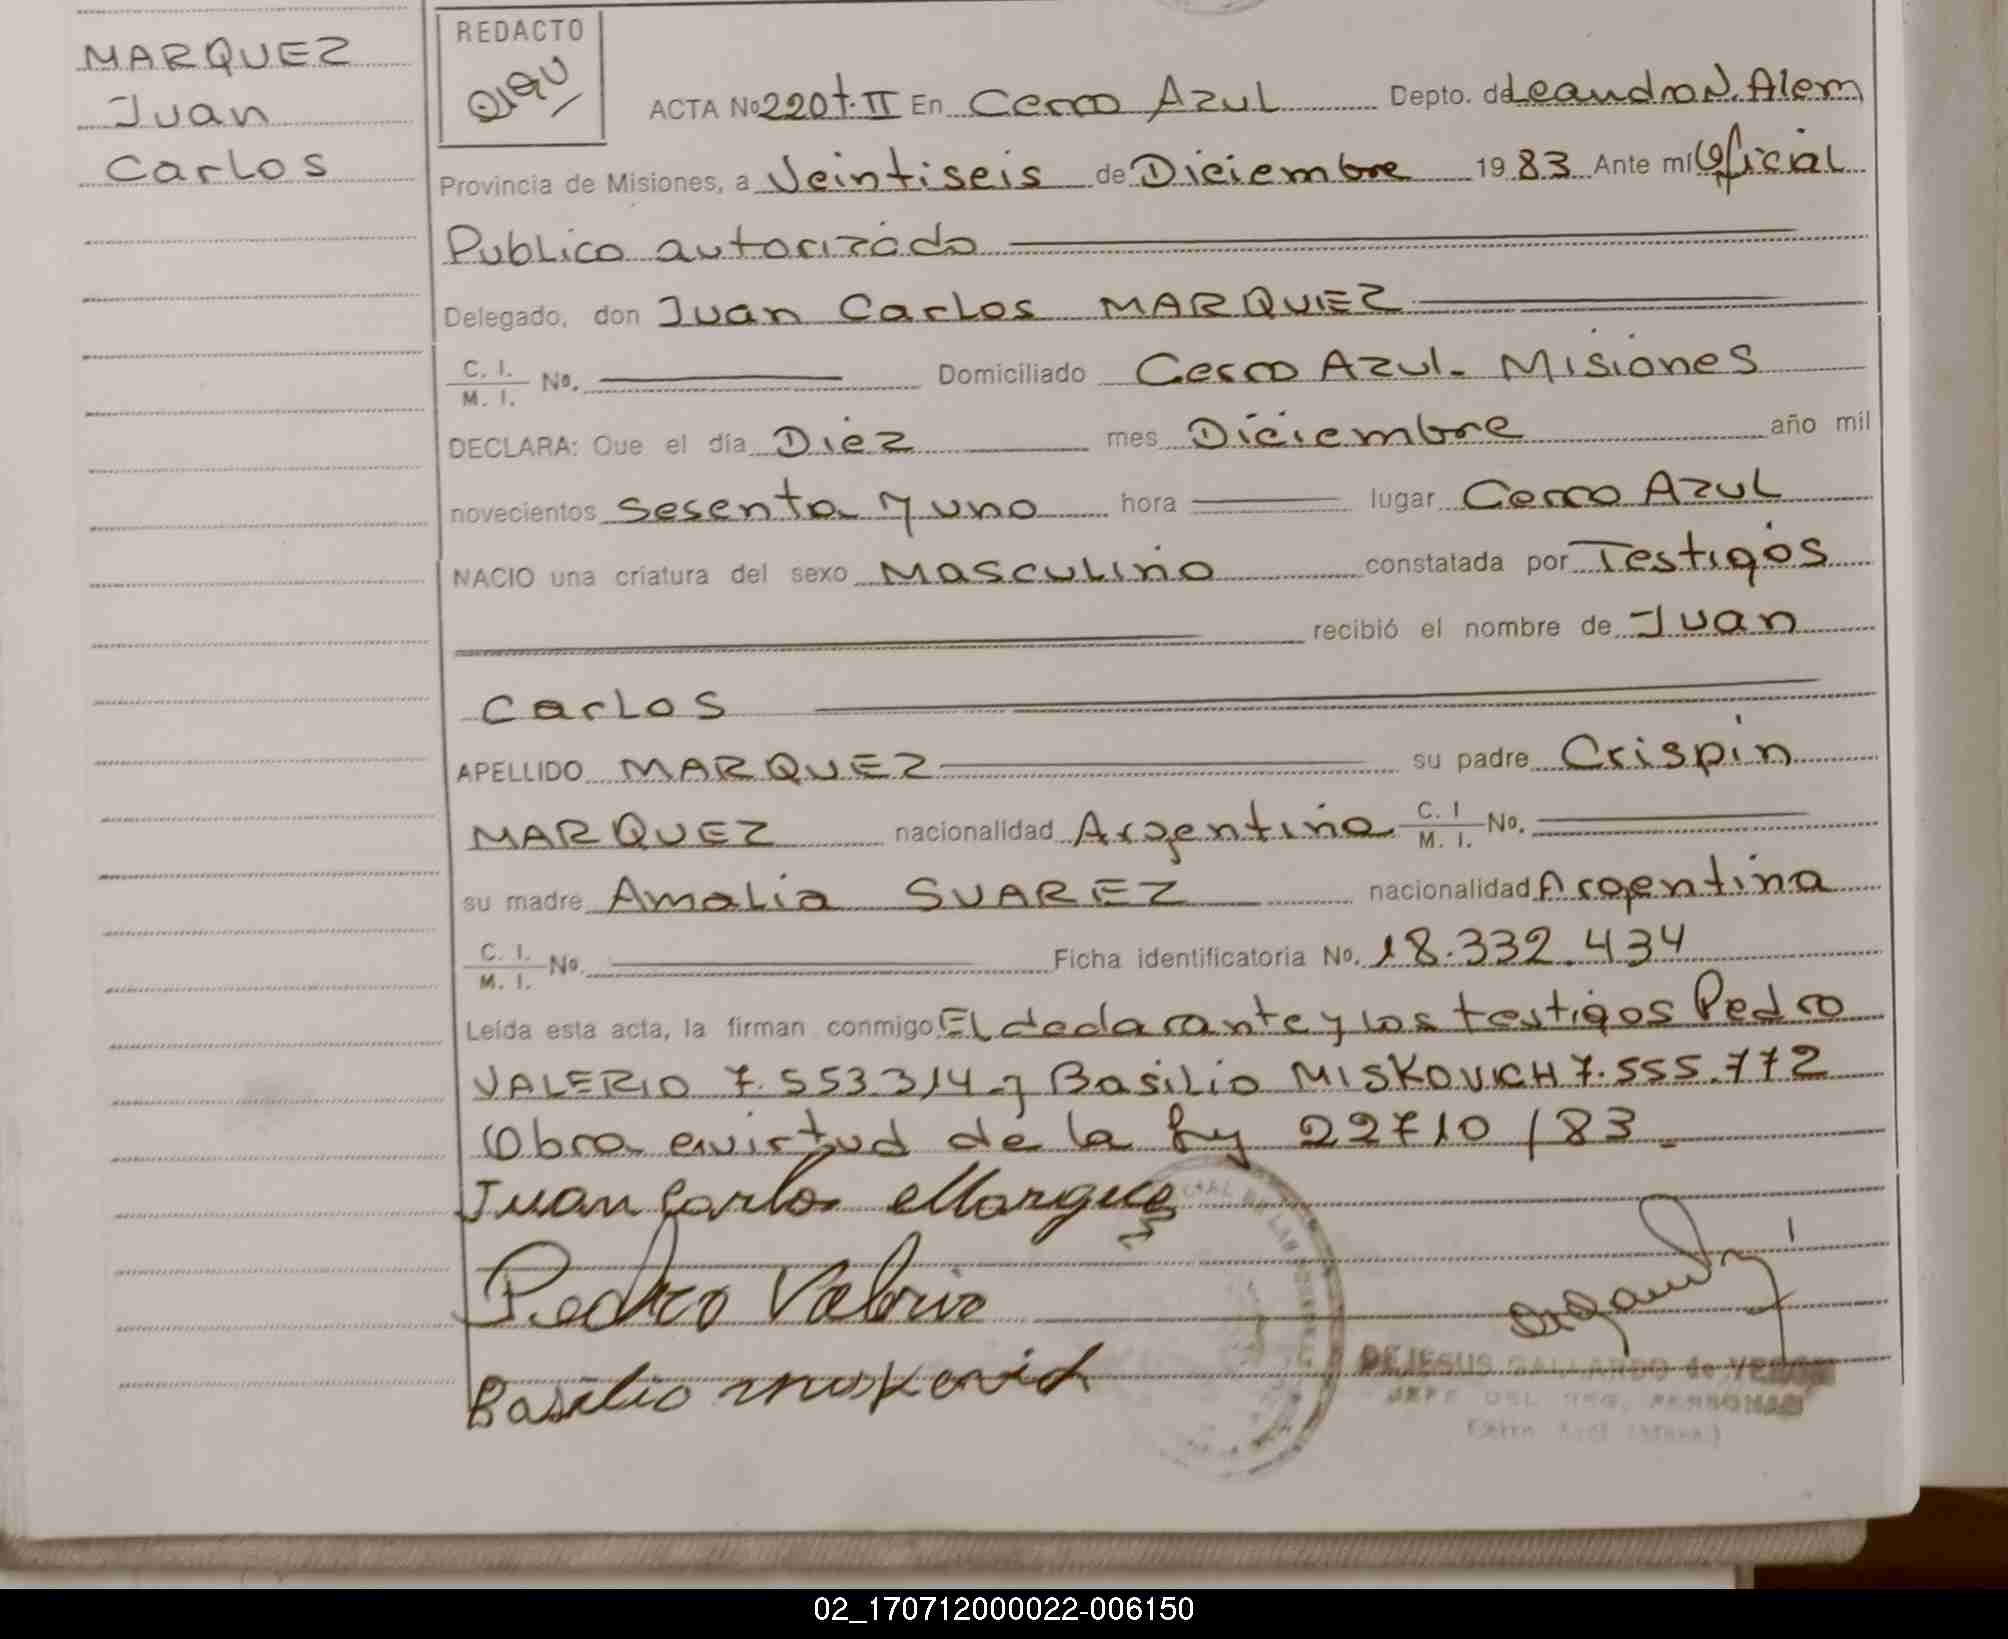 MARQUEZ
Juan
Carlos
REDACTO
ACTA No 220 t. II En Cerro Azul Depto. de Leandro N. Alem
Provincia de Misiones, a Veintiseis de Diciembre 1983 Ante mi Oficial
Publico autorizado
Delegado, don Juan Carlos MARQUEZ
C. I. / M. I. No. Domiciliado Cerro Azul - Misiones
DECLARA: Que el día Diez mes Diciembre año mil
novecientos sesenta y uno hora lugar Cerro Azul
NACIO una criatura del sexo Masculino constatada por Testigos
recibió el nombre de Juan
Carlos
APELLIDO MARQUEZ su padre Crispin
MARQUEZ nacionalidad Argentina C. I / M. I. No.
su madre Amalia SUAREZ nacionalidad Argentina
C. I. / M. I. No. Ficha identificatoria No. 18.332.434
Leída esta acta, la firman conmigo El declarante y los testigos Pedro
VALERIO 7.553.314 y Basilio MISKOVICH 7.555.772
Obra envirtud de la ley 22710/83.
Juan Carlos Marquez
Pedro Valerio
Basilio Miskovich
DEJESUS GALLARDO de VERON
JEFE DEL REG. PERSONAS
02_170712000022-006150